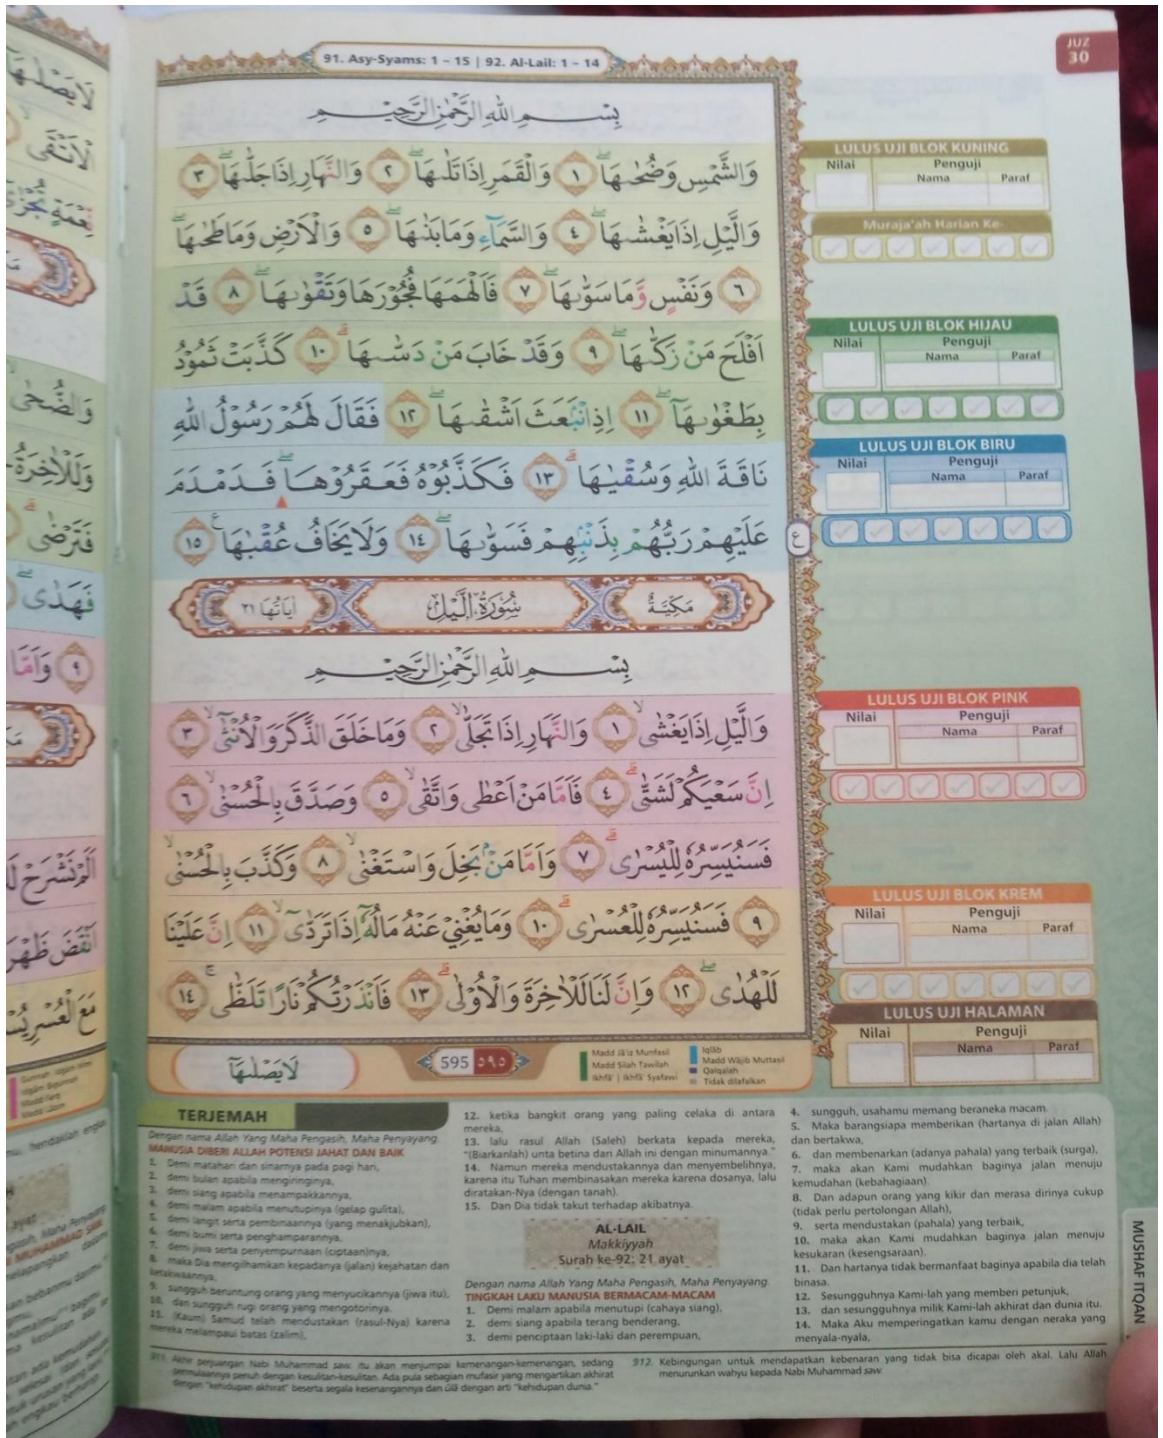 91. Asy-Syams: 1 – 15 | 92. Al-Lail: 1 – 14
JUZ
30
بِسْمِ اللّٰهِ الرَّحْمٰنِ الرَّحِيْمِ
وَالشَّمْسِ وَضُحٰىهَاۖ ١ وَالْقَمَرِ اِذَا تَلٰىهَاۖ ٢ وَالنَّهَارِ اِذَا جَلّٰىهَاۖ ٣
وَالَّيْلِ اِذَا يَغْشٰىهَاۖ ٤ وَالسَّمَاۤءِ وَمَا بَنٰىهَاۖ ٥ وَالْاَرْضِ وَمَا طَحٰىهَاۖ
٦ وَنَفْسٍ وَّمَا سَوّٰىهَاۖ ٧ فَاَلْهَمَهَا فُجُوْرَهَا وَتَقْوٰىهَاۖ ٨ قَدْ
اَفْلَحَ مَنْ زَكّٰىهَاۖ ٩ وَقَدْ خَابَ مَنْ دَسّٰىهَاۗ ١٠ كَذَّبَتْ ثَمُوْدُ
بِطَغْوٰىهَآۖ ١١ اِذِ انْۢبَعَثَ اَشْقٰىهَاۖ ١٢ فَقَالَ لَهُمْ رَسُوْلُ اللّٰهِ
نَاقَةَ اللّٰهِ وَسُقْيٰهَاۗ ١٣ فَكَذَّبُوْهُ فَعَقَرُوْهَاۖ فَدَمْدَمَ
عَلَيْهِمْ رَبُّهُمْ بِذَنْۢبِهِمْ فَسَوّٰىهَاۖ ١٤ وَلَا يَخَافُ عُقْبٰهَا ١٥
ع
مَكِّيَّةٌ سُوْرَةُ الَّيْلِ اٰيَاتُهَا ٢١
بِسْمِ اللّٰهِ الرَّحْمٰنِ الرَّحِيْمِ
وَالَّيْلِ اِذَا يَغْشٰىۙ ١ وَالنَّهَارِ اِذَا تَجَلّٰىۙ ٢ وَمَا خَلَقَ الذَّكَرَ وَالْاُنْثٰىٓۙ ٣
اِنَّ سَعْيَكُمْ لَشَتّٰىۗ ٤ فَاَمَّا مَنْ اَعْطٰى وَاتَّقٰىۙ ٥ وَصَدَّقَ بِالْحُسْنٰىۙ ٦
فَسَنُيَسِّرُهٗ لِلْيُسْرٰىۗ ٧ وَاَمَّا مَنْۢ بَخِلَ وَاسْتَغْنٰىۙ ٨ وَكَذَّبَ بِالْحُسْنٰىۙ
٩ فَسَنُيَسِّرُهٗ لِلْعُسْرٰىۗ ١٠ وَمَا يُغْنِيْ عَنْهُ مَالُهٗٓ اِذَا تَرَدّٰىٓۙ ١١ اِنَّ عَلَيْنَا
لَلْهُدٰىۖ ١٢ وَاِنَّ لَنَا لَلْاٰخِرَةَ وَالْاُوْلٰىۗ ١٣ فَاَنْذَرْتُكُمْ نَارًا تَلَظّٰىۚ ١٤
لَا يَصْلٰىهَآ
595 ٥٩٥
Madd Jā'iz Munfasil
Madd Silah Tawilah
Ikhfā' | Ikhfā' Syafawi
Iqlāb
Madd Wājib Muttasil
Qalqalah
Tidak dilafalkan
LULUS UJI BLOK KUNING
Nilai Penguji
Nama Paraf
Muraja'ah Harian Ke-
LULUS UJI BLOK HIJAU
Nilai Penguji
Nama Paraf
LULUS UJI BLOK BIRU
Nilai Penguji
Nama Paraf
LULUS UJI BLOK PINK
Nilai Penguji
Nama Paraf
LULUS UJI BLOK KREM
Nilai Penguji
Nama Paraf
LULUS UJI HALAMAN
Nilai Penguji
Nama Paraf
TERJEMAH
Dengan nama Allah Yang Maha Pengasih, Maha Penyayang.
MANUSIA DIBERI ALLAH POTENSI JAHAT DAN BAIK
1. Demi matahari dan sinarnya pada pagi hari,
2. demi bulan apabila mengiringinya,
3. demi siang apabila menampakkannya,
4. demi malam apabila menutupinya (gelap gulita),
5. demi langit serta pembinaannya (yang menakjubkan),
6. demi bumi serta penghamparannya,
7. demi jiwa serta penyempurnaan (ciptaan)nya,
8. maka Dia mengilhamkan kepadanya (jalan) kejahatan dan
ketakwaannya,
9. sungguh beruntung orang yang menyucikannya (jiwa itu),
10. dan sungguh rugi orang yang mengotorinya.
11. (Kaum) Samud telah mendustakan (rasul-Nya) karena
mereka melampaui batas (zalim),
12. ketika bangkit orang yang paling celaka di antara
mereka,
13. lalu rasul Allah (Saleh) berkata kepada mereka,
"(Biarkanlah) unta betina dari Allah ini dengan minumannya."
14. Namun mereka mendustakannya dan menyembelihnya,
karena itu Tuhan membinasakan mereka karena dosanya, lalu
diratakan-Nya (dengan tanah).
15. Dan Dia tidak takut terhadap akibatnya.
AL-LAIL
Makkiyyah
Surah ke-92: 21 ayat
Dengan nama Allah Yang Maha Pengasih, Maha Penyayang.
TINGKAH LAKU MANUSIA BERMACAM-MACAM
1. Demi malam apabila menutupi (cahaya siang),
2. demi siang apabila terang benderang,
3. demi penciptaan laki-laki dan perempuan,
4. sungguh, usahamu memang beraneka macam.
5. Maka barangsiapa memberikan (hartanya di jalan Allah)
dan bertakwa,
6. dan membenarkan (adanya pahala) yang terbaik (surga),
7. maka akan Kami mudahkan baginya jalan menuju
kemudahan (kebahagiaan).
8. Dan adapun orang yang kikir dan merasa dirinya cukup
(tidak perlu pertolongan Allah),
9. serta mendustakan (pahala) yang terbaik,
10. maka akan Kami mudahkan baginya jalan menuju
kesukaran (kesengsaraan).
11. Dan hartanya tidak bermanfaat baginya apabila dia telah
binasa.
12. Sesungguhnya Kami-lah yang memberi petunjuk,
13. dan sesungguhnya milik Kami-lah akhirat dan dunia itu.
14. Maka Aku memperingatkan kamu dengan neraka yang
menyala-nyala,
MUSHAF ITQAN
911. Akhir perjuangan Nabi Muhammad saw. itu akan menjumpai kemenangan-kemenangan, sedang
permulaannya penuh dengan kesulitan-kesulitan. Ada pula sebagian mufasir yang mengartikan akhirat
dengan "kehidupan akhirat" beserta segala kesenangannya dan ūlā dengan arti "kehidupan dunia."
912. Kebingungan untuk mendapatkan kebenaran yang tidak bisa dicapai oleh akal. Lalu Allah
menurunkan wahyu kepada Nabi Muhammad saw.